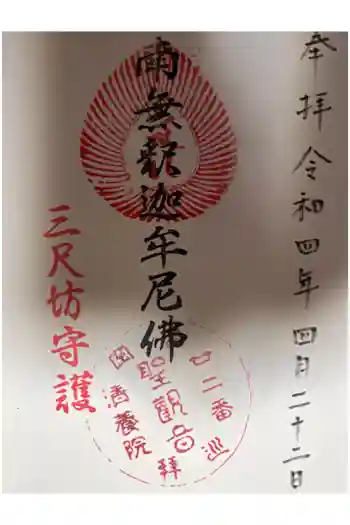 奉拝 令和四年四月二十二日
南無釈迦牟尼佛
三尺坊守護
廿二番巡拝
聖觀音
清養院